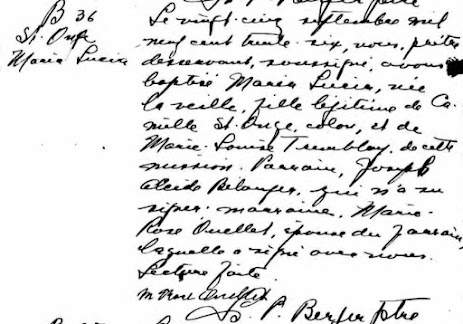 B 36
St. Onge
Maria Lucie
Le vingt-cinq septembre mil
neuf cent trente-six, nous, prêtre
desservant, soussigné, avons
baptisé Maria Lucie, née
la veille, fille légitime de Ca-
mille St. Onge, colon, et de
Marie-Louise Tremblay, de cette
mission. Parrain, Joseph
Alcide Belanger, qui n'a su
signer. marraine, Marie-
Rose Ouellet, épouse du parrain,
laquelle a signé avec nous.
Lecture faite.
M Rose Ouellet
P. Ptre